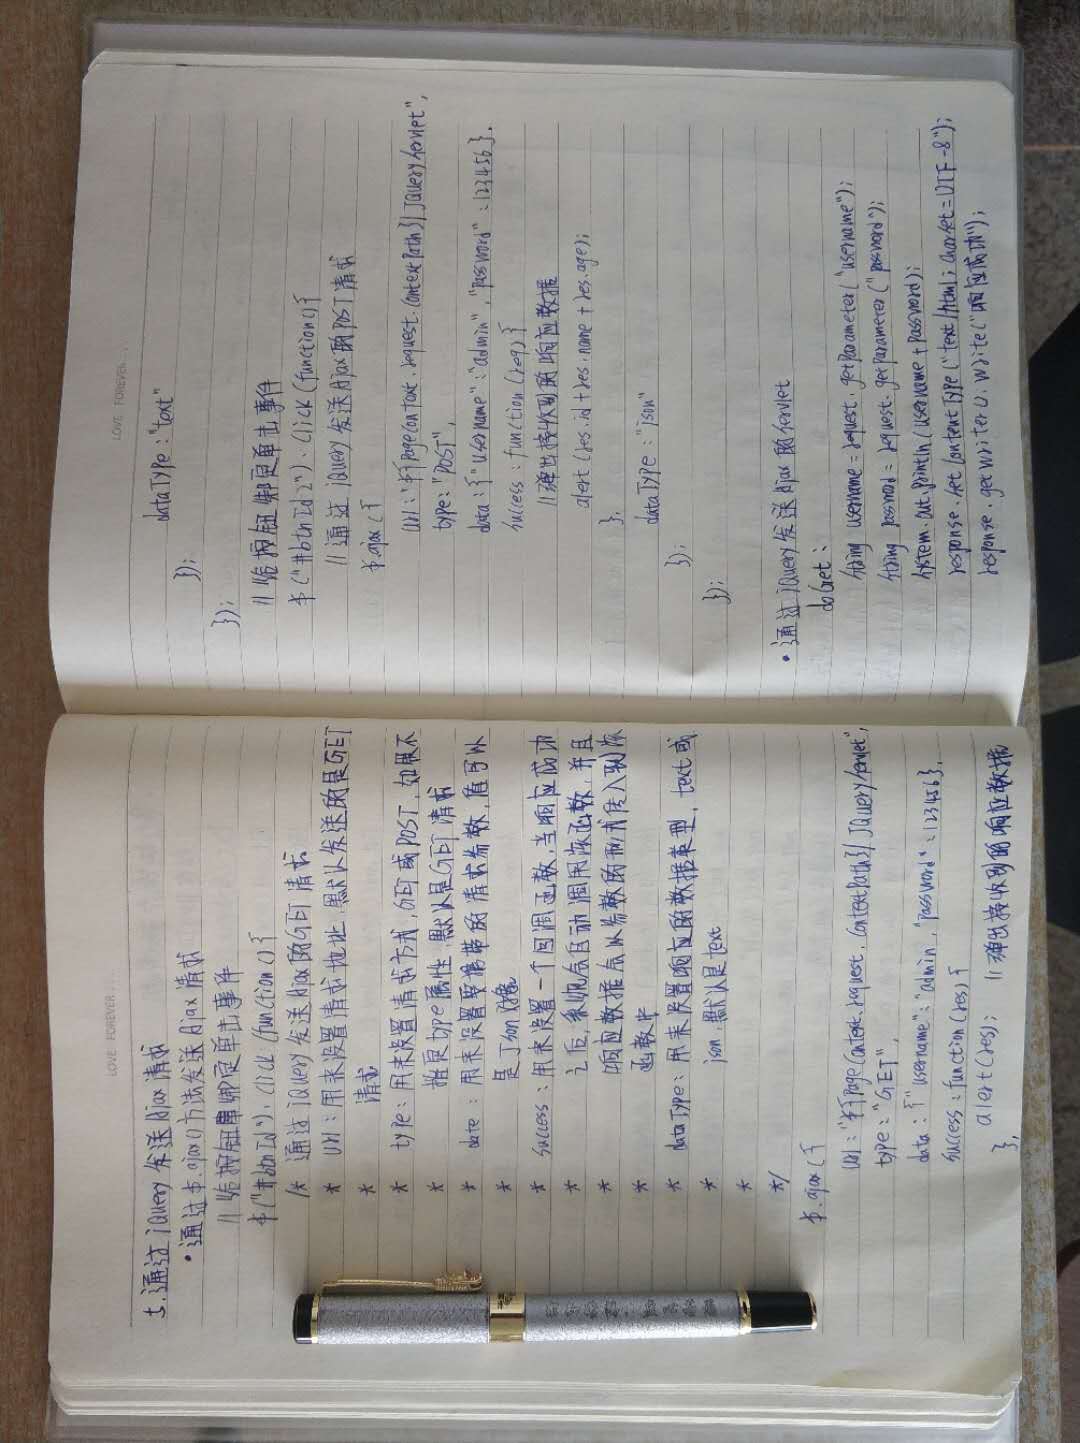 LOVE FOREVER...
5.通过jQuery发送Ajax请求
•通过$.ajax()方法发送Ajax请求
//给按钮绑定单击事件
$("#btnId").click(function(){
/* 通过jQuery发送Ajax的GET请求
* url:用来设置请求地址,默认发送的是GET
* 请求
* type:用来设置请求方式,GET或POST,如果不
* 指定type属性,默认是GET请求
* date:用来设置要携带的请求参数,值可以
* 是Json对象
* success:用来设置一个回调函数,当响应成功
* 之后,系统会自动调用该函数,并且
* 响应数据会以参数的形式传入到该
* 函数中
* dataType:用来设置响应的数据类型,text或
* json,默认是text
*
*/
$.ajax({
url:"${pageContext.request.contextPath}/JQueryServlet",
type:"GET",
data:{"username":"admin","password":123456},
success:function(res){
alert(res); //弹出接收到的响应数据
},
LOVE FOREVER...
dataType:"text"
});
});
//给按钮绑定单击事件
$("#btnId2").click(function(){
//通过jQuery发送Ajax的POST请求
$.ajax({
url:"${pageContext.request.contextPath}/JQueryServlet",
type:"POST",
data:{"username":"admin","password":123456},
success:function(req){
//弹出接收到的响应数据
alert(res.id+res.name+res.age);
},
dataType:"json"
});
});
•通过jQuery发送Ajax的Servlet
doGet:
String username=request.getParameter("username");
String password=request.getParameter("password");
System.out.println(username+password);
response.setContentType("text/html;charset=UTF-8");
response.getWriter().write("响应成功");